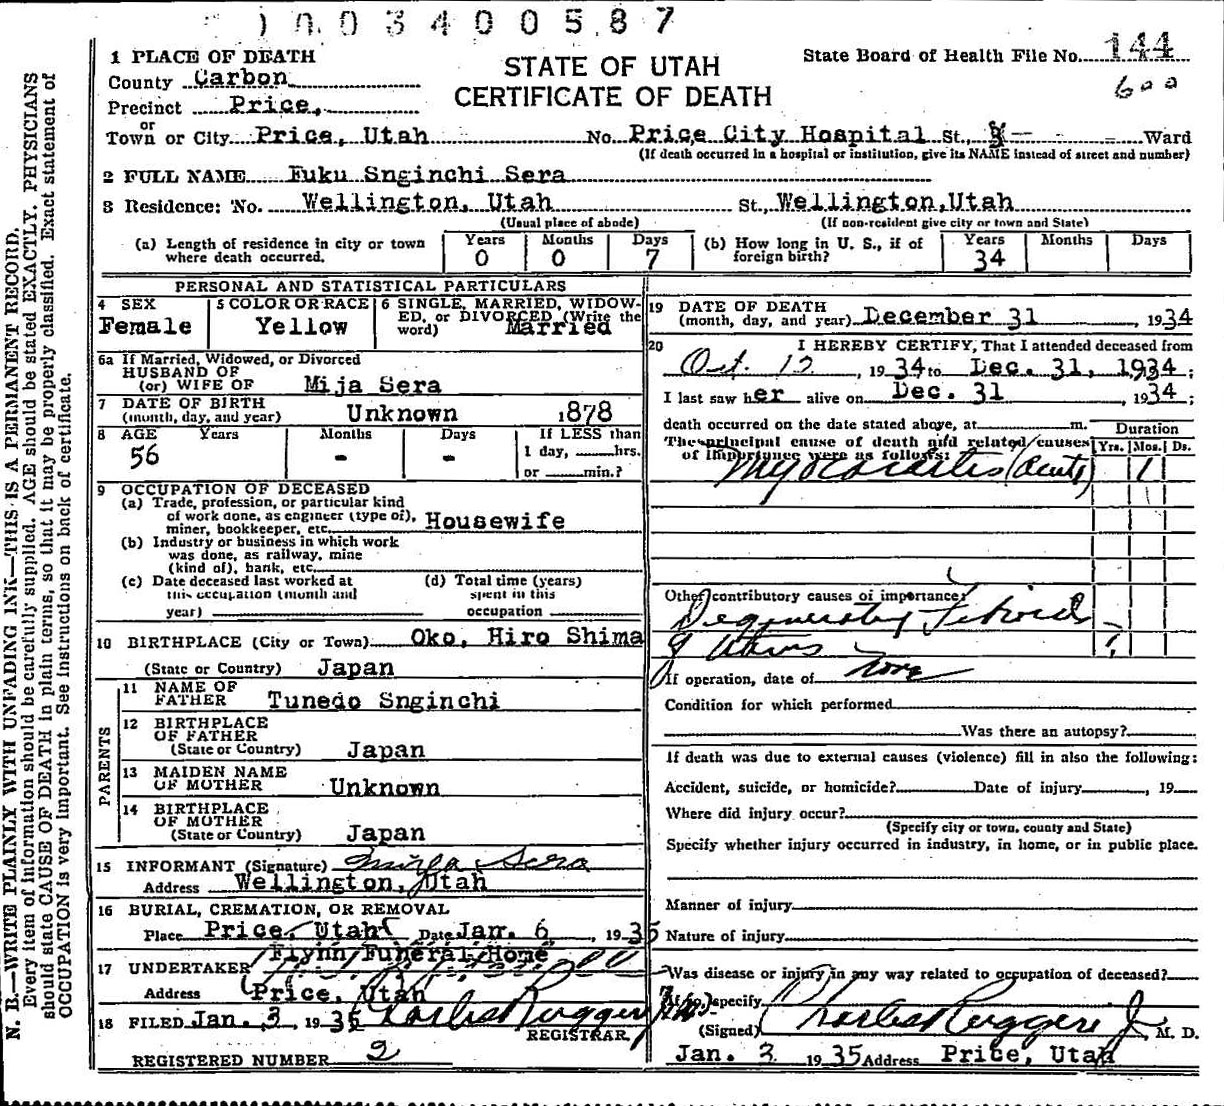 1003400587
1 PLACE OF DEATH
STATE OF UTAH
CERTIFICATE OF DEATH
State Board of Health File No. 144
600
County Carbon
Precinct Price,
or
Town or City Price, Utah No. Price City Hospital St., Ward
(If death occurred in a hospital or institution, give its NAME instead of street and number)
2 FULL NAME Fuku Snginchi Sera
3 Residence: No. Wellington, Utah St., Wellington, Utah
(Usual place of abode) (If non-resident give city or town and State)
(a) Length of residence in city or town where death occurred. Years 0 Months 0 Days 7
(b) How long in U. S., if of foreign birth? Years 34 Months Days
PERSONAL AND STATISTICAL PARTICULARS
4 SEX
Female
5 COLOR OR RACE
Yellow
6 SINGLE, MARRIED, WIDOW-
ED, or DIVORCED (Write the
word) Married
6a If Married, Widowed, or Divorced
HUSBAND OF
(or) WIFE OF Mija Sera
7 DATE OF BIRTH
(month, day, and year) Unknown 1878
8 AGE Years Months Days If LESS than
56 - - 1 day, hrs.
or min.?
9 OCCUPATION OF DECEASED
(a) Trade, profession, or particular kind
of work done, as engineer (type of),
miner, bookkeeper, etc. Housewife
(b) Industry or business in which work
was done, as railway, mine
(kind of), bank, etc.
(c) Date deceased last worked at
this occupation (month and
year)
(d) Total time (years)
spent in this
occupation
10 BIRTHPLACE (City or Town) Oko, Hiro Shima
(State or Country) Japan
PARENTS
11 NAME OF
FATHER Tunedo Snginchi
12 BIRTHPLACE
OF FATHER
(State or Country) Japan
13 MAIDEN NAME
OF MOTHER Unknown
14 BIRTHPLACE
OF MOTHER
(State or Country) Japan
15 INFORMANT (Signature) Sera
Address Wellington, Utah
16 BURIAL, CREMATION, OR REMOVAL
Place Price, Utah Date Jan. 6, 1935
Flynn Funeral Home
17 UNDERTAKER
Address Price, Utah
18 FILED Jan. 3, 1935 Charles Ruggeri
REGISTRAR
REGISTERED NUMBER 2
19 DATE OF DEATH
(month, day, and year) December 31, 1934
20 I HEREBY CERTIFY, That I attended deceased from
Oct. 12, 1934 to Dec. 31, 1934;
I last saw her alive on Dec. 31, 1934;
death occurred on the date stated above, at m.
The principal cause of death and related causes
of importance were as follows:
Duration
Yrs. Mos. Ds.
Myocarditis (acute) 1
Other contributory causes of importance:
Degenerating Fibroid
of Uterus ?
If operation, date of none
Condition for which performed
Was there an autopsy?
If death was due to external causes (violence) fill in also the following:
Accident, suicide, or homicide? Date of injury , 19
Where did injury occur?
(Specify city or town, county and State)
Specify whether injury occurred in industry, in home, or in public place.
Manner of injury
Nature of injury
Was disease or injury in any way related to occupation of deceased?
If so, specify
(Signed) Charles Ruggeri Jr M. D.
Jan. 3 1935 Address Price, Utah
N. B.—WRITE PLAINLY WITH UNFADING INK—THIS IS A PERMANENT RECORD.
Every item of information should be carefully supplied. AGE should be stated EXACTLY. PHYSICIANS
should state CAUSE OF DEATH in plain terms, so that it may be properly classified. Exact statement of
OCCUPATION is very important. See instructions on back of certificate.